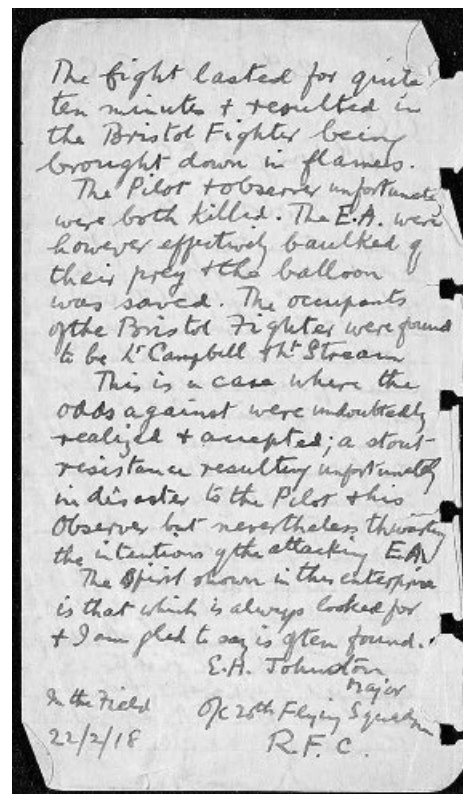 The fight lasted for quite
ten minutes + resulted in
the Bristol Fighter being
brought down in flames.
The Pilot + observer unfortunately
were both killed. The E.A. were
however effectively baulked of
their prey + the balloon
was saved. The occupants
of the Bristol Fighter were found
to be Lt Campbell + Lt Stream
This is a case where the
odds against were undoubtedly
realized + accepted; a stout
resistance resulting unfortunately
in disaster to the Pilot + his
Observer but nevertheless thwarting
the intentions of the attacking E.A.
The Spirit shown in this enterprise
is that which is always looked for
+ I am glad to say is often found.
E.A. Johnston
Major
In the Field O/C 20th Flying Squadron
22/2/18 R.F.C.